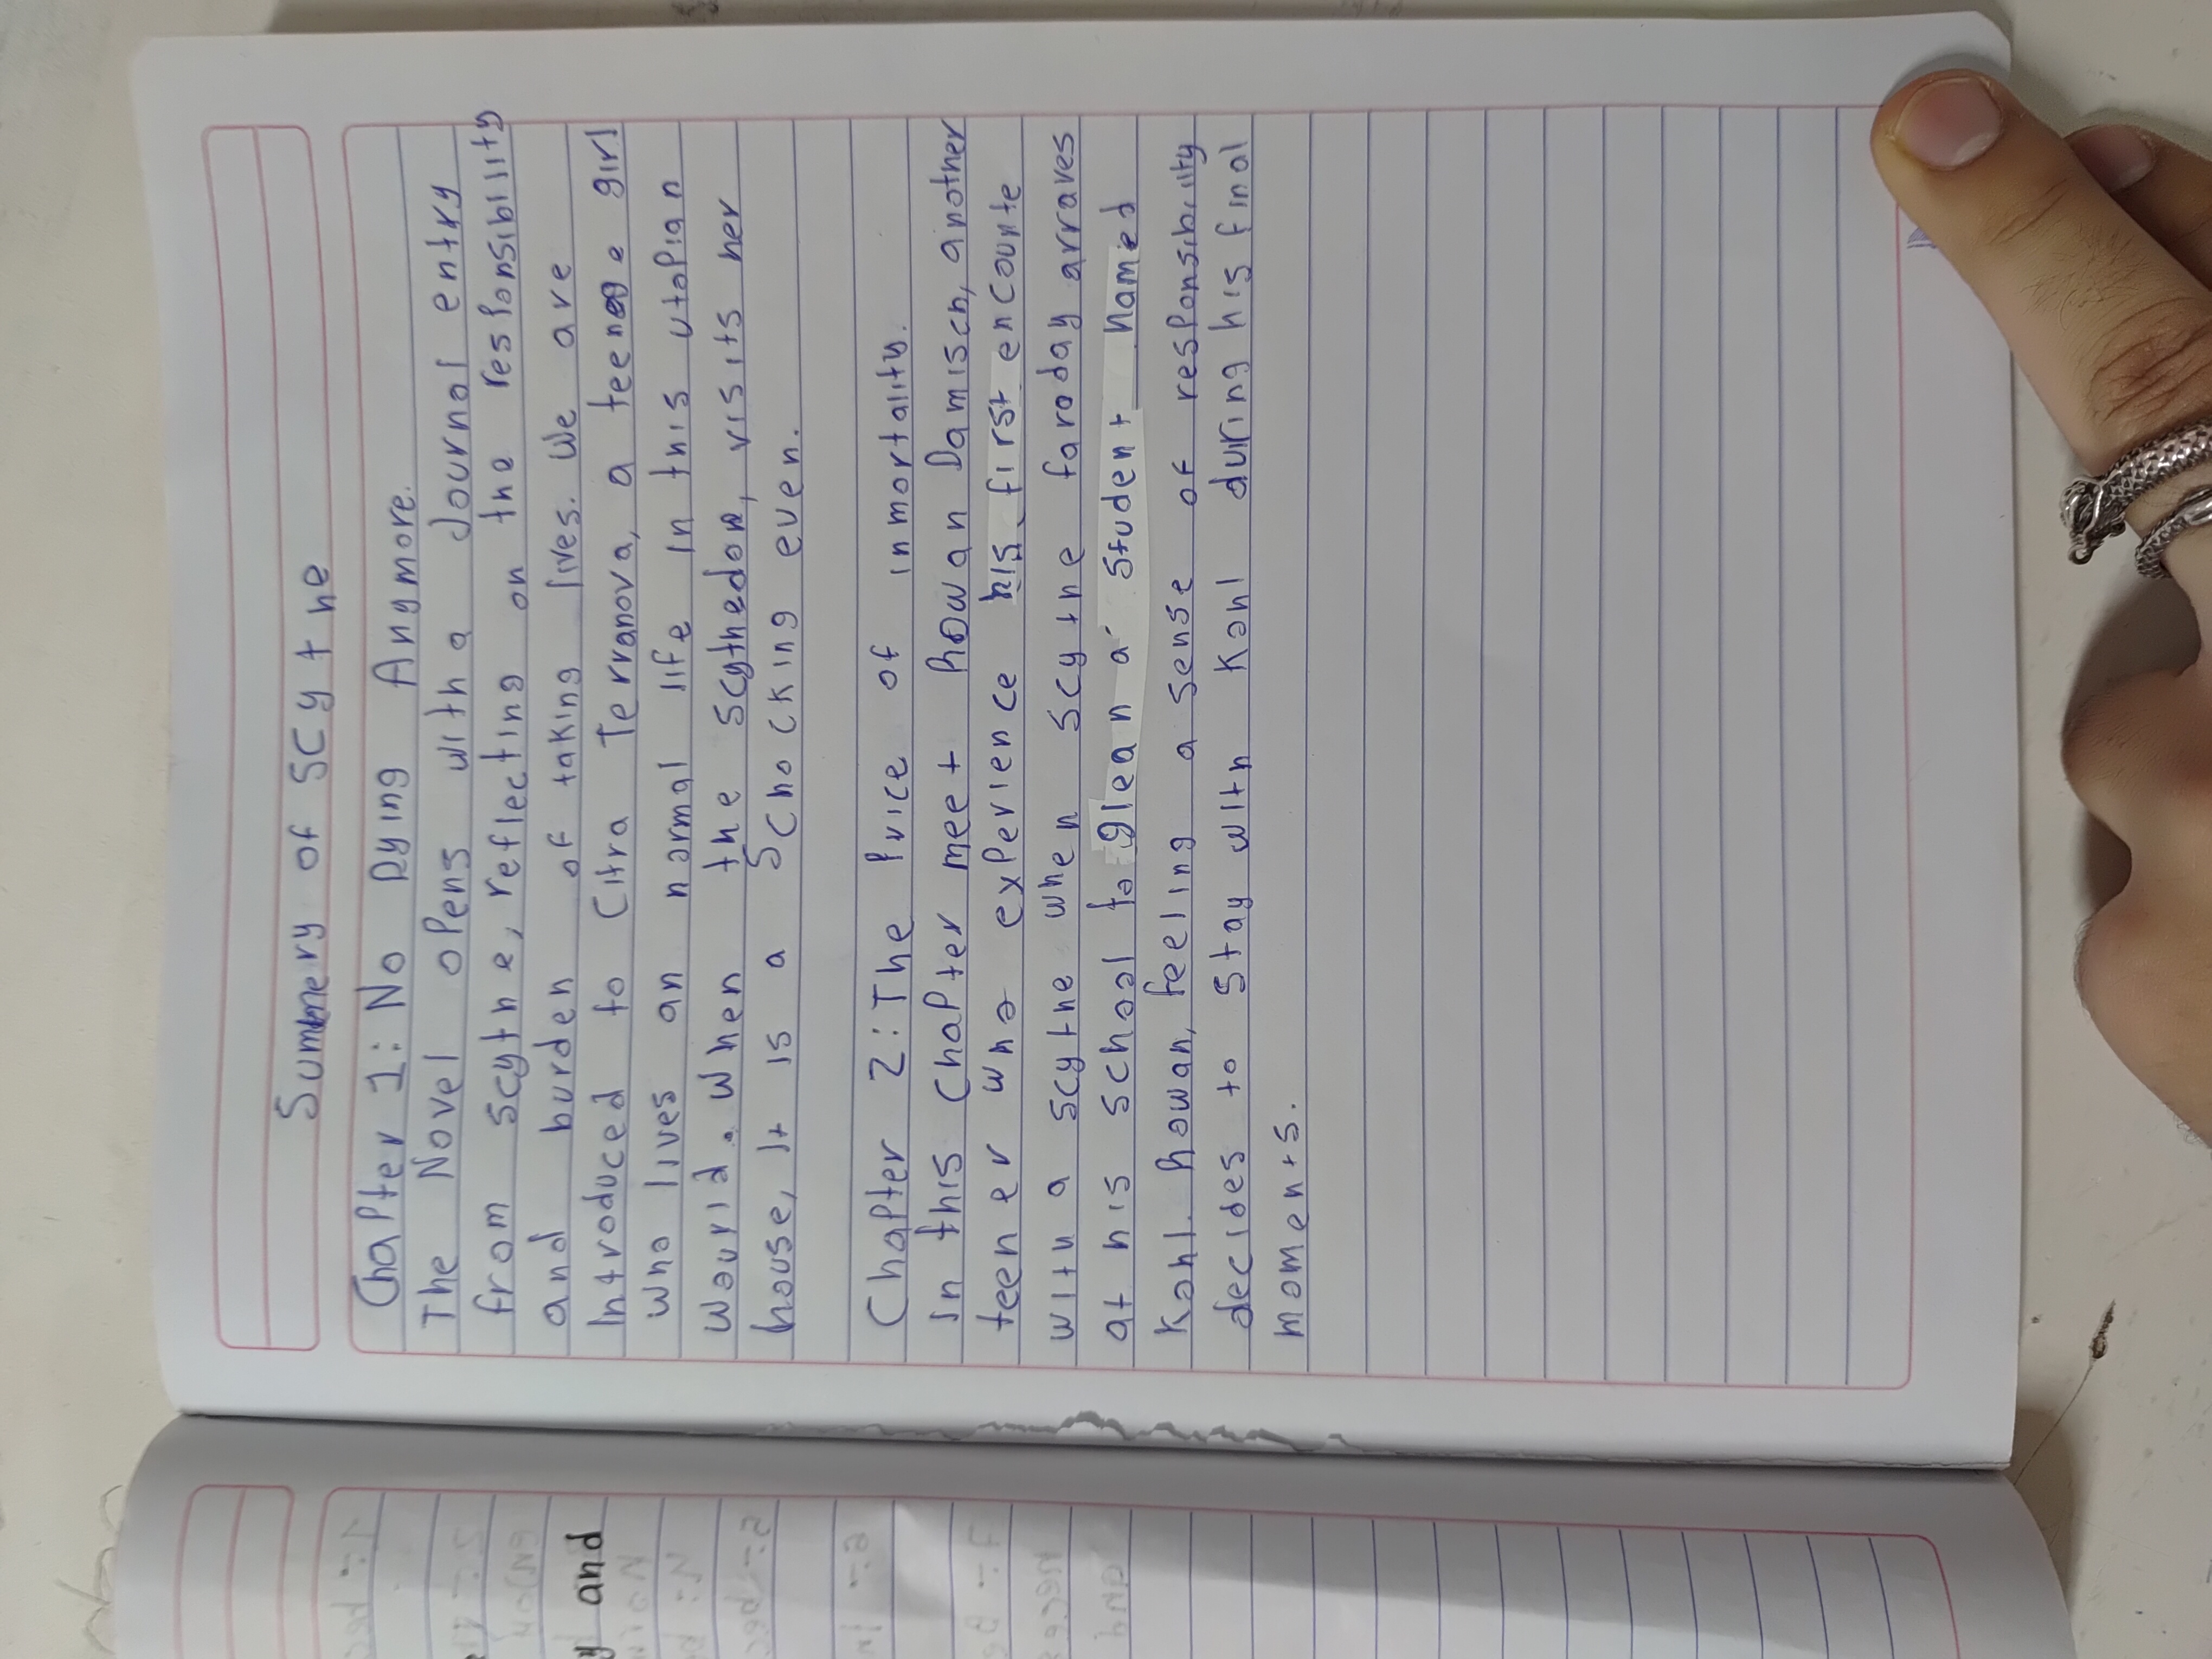 Summery of SCythe
Chapter 1: No Dying Anymore.
The Novel opens with a Journal entry
from scythe, reflecting on the responsibility
and burden of taking lives. We are
Introduced to Citra Terranova, a teenege girl
who lives an normal life in this utopian
wourld. When the scythedom, visits her
house, It is a Schocking even.
Chapter 2: The Price of inmortality.
In this Chapter meet Rowan Damisch, another
teener who experience his first encounte
with a scythe when scythe faraday arraves
at his school to glean a student named
Kohl. Rowan, feeling a sense of responsibility
decides to stay with Kohl during his final
moments.
y and